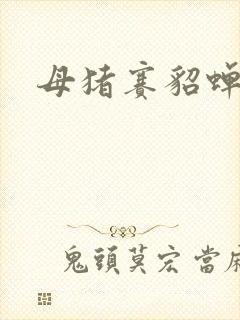 母猪赛貂蝉
鬼頭莫宏當